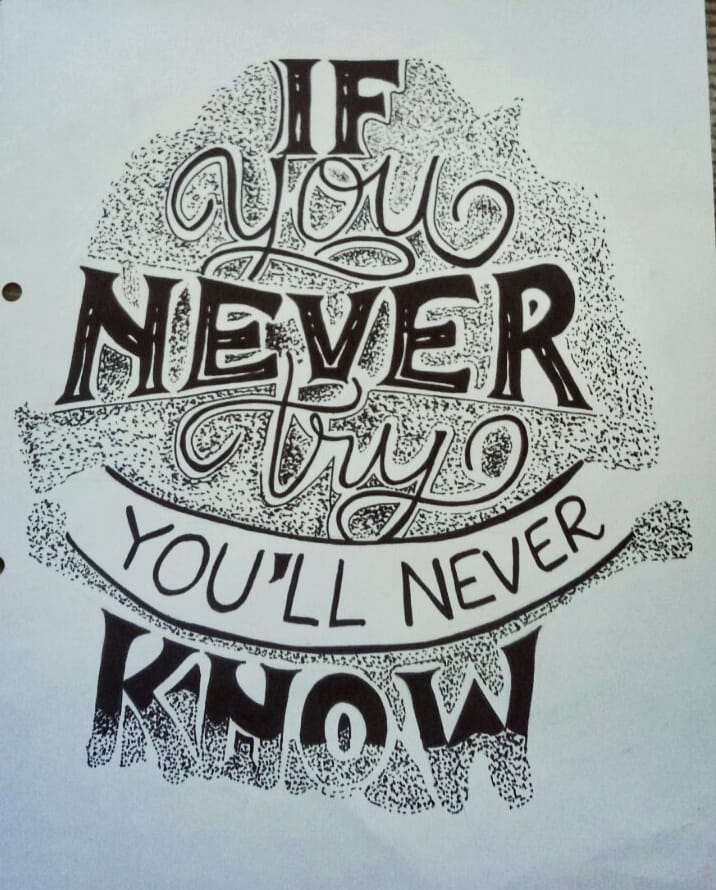 IF
you
NEVER
try
YOU'LL NEVER
KNOW